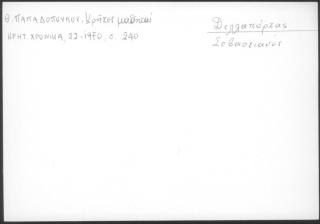 Θ. ΠΑΠΑΔΟΠΟΥΛΟΥ, Κρῆτες μαθηταί
ΚΡΗΤ. ΧΡΟΝΙΚΑ, 22-1970, σ. 240
Δελλαπόρτας
Σεβαστιανός